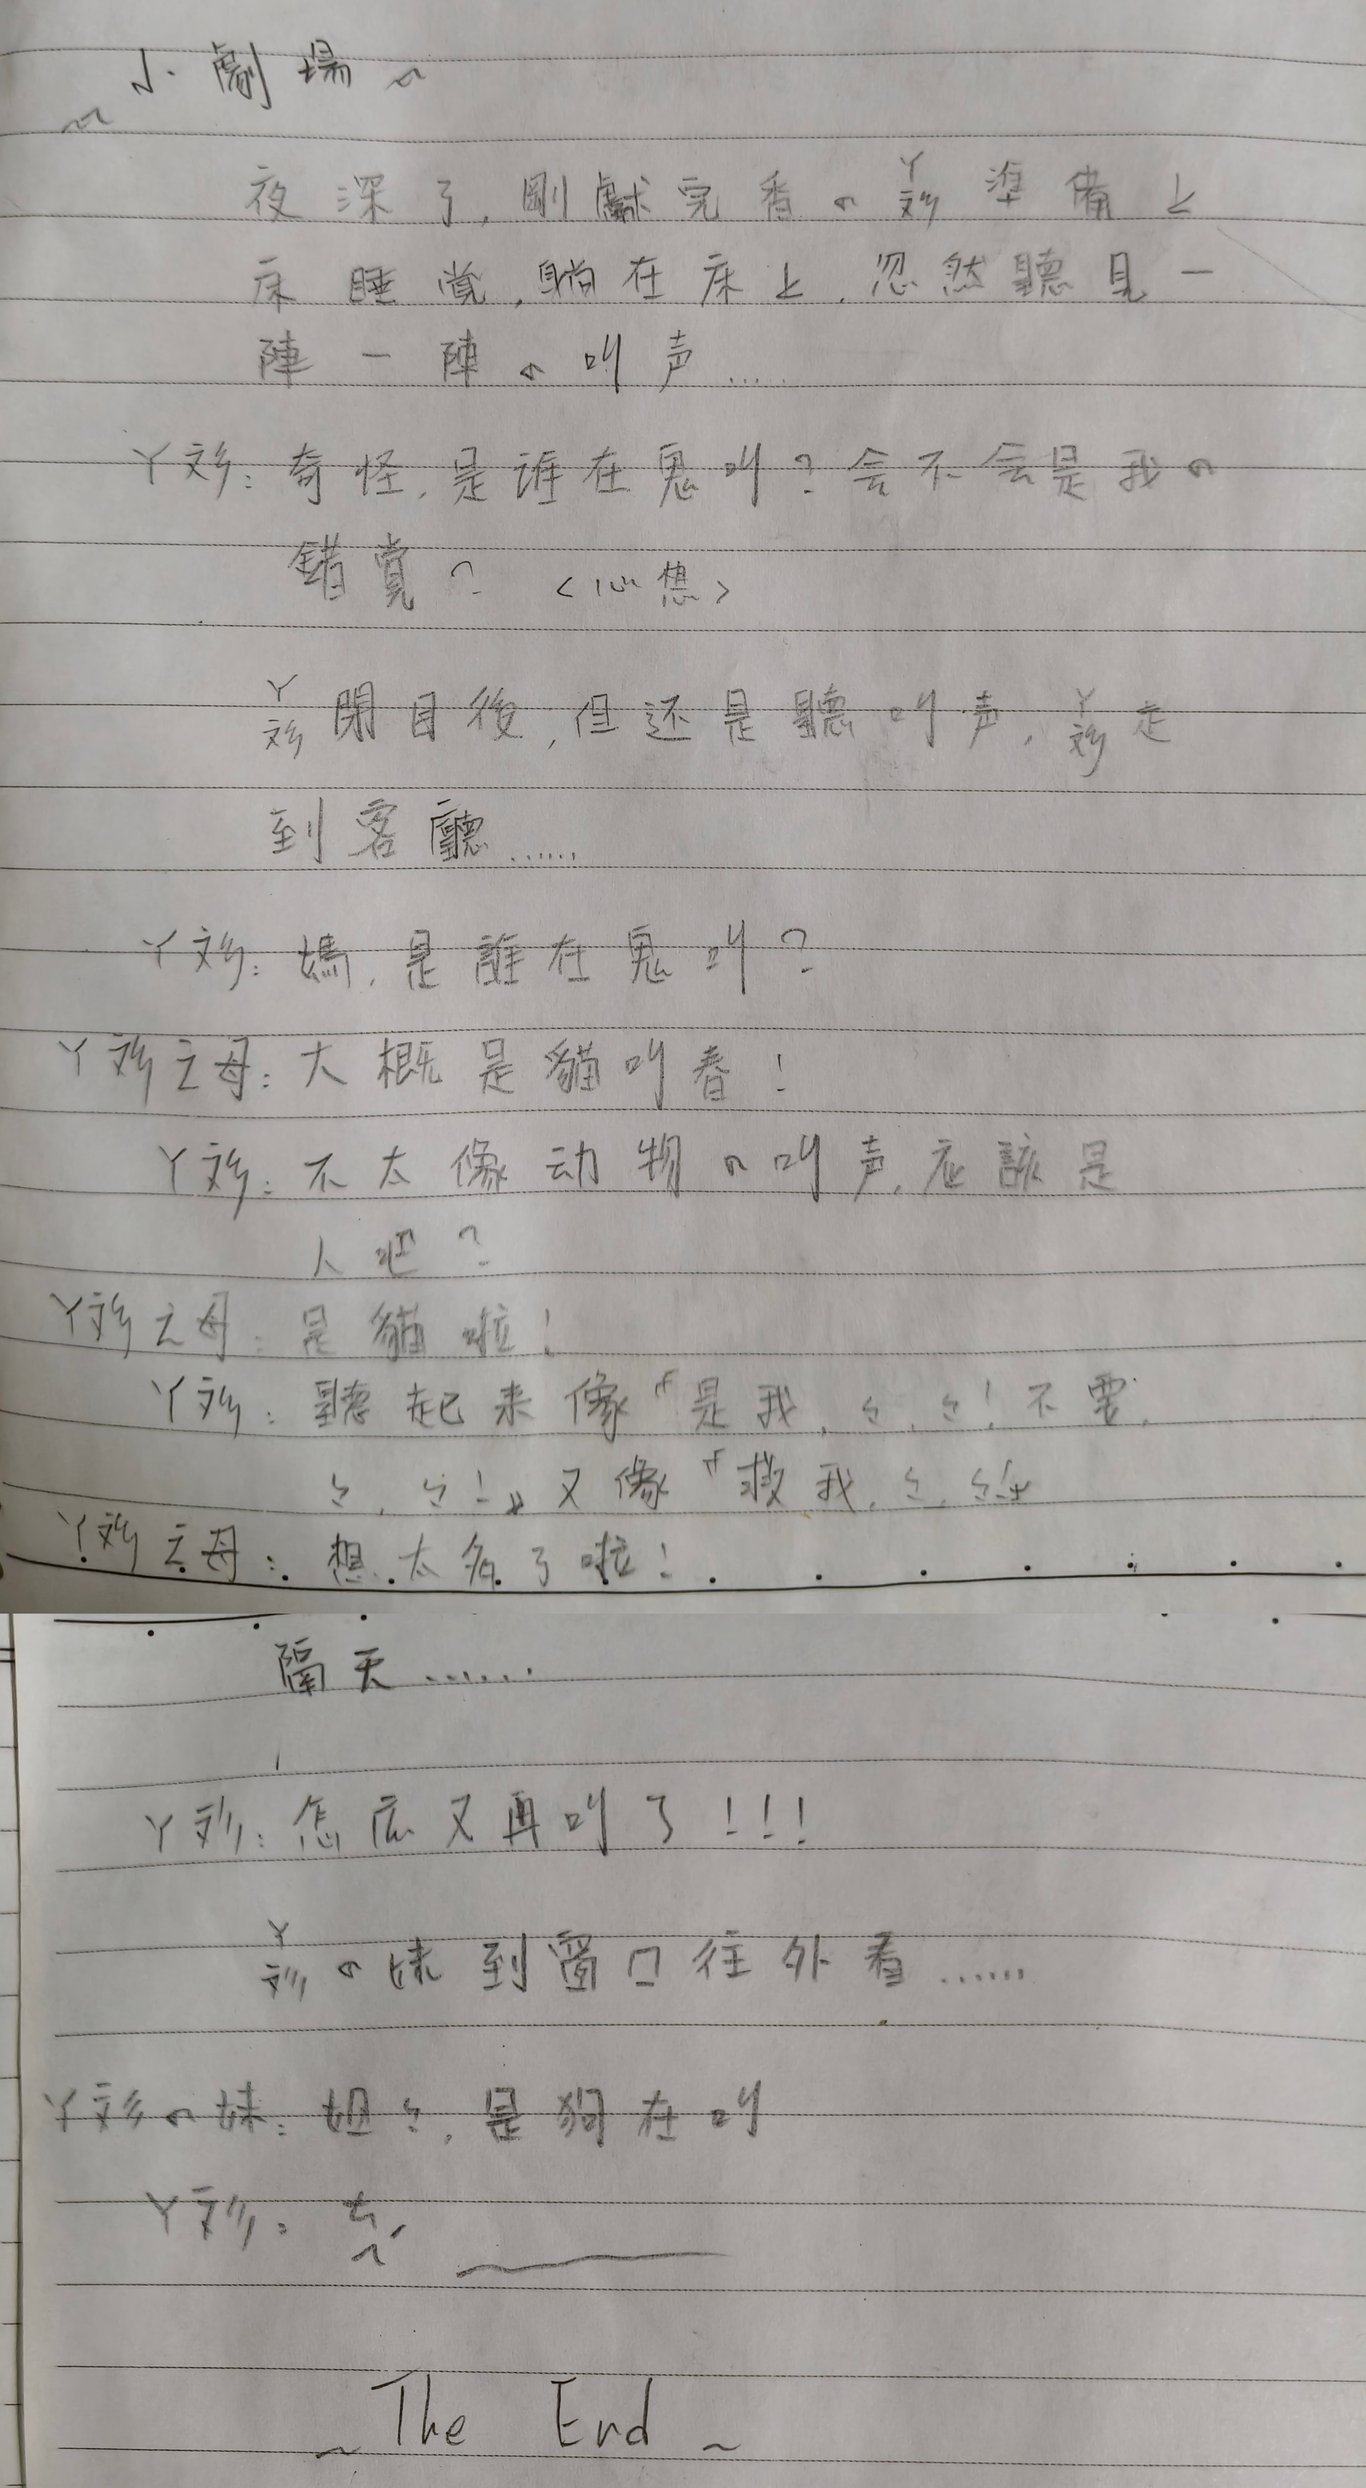 ~小劇場~
夜深了,剛獻完香の丫彣準備上
床睡覚,躺在床上,忽然聽見一
陣一陣の叫声……
丫彣:奇怪,是谁在鬼叫?会不会是我の
錯覚?<心想>
丫彣閉目後,但还是聽叫声,丫彣走
到客廳……
丫彣:媽,是誰在鬼叫?
丫彣之母:大概是貓叫春!
丫彣:不太像动物の叫声,应該是
人吧?
丫彣之母:是貓啦!
丫彣:聽起来像『是我,々,々!不要,
々,々!』又像『救我,々,々!』
丫彣之母:想太多了啦!
隔天……
丫彣:怎庅又再叫了!!!
丫彣の妹到窗口往外看……
丫彣の妹:姐々,是狗在叫
丫彣:
~The End~